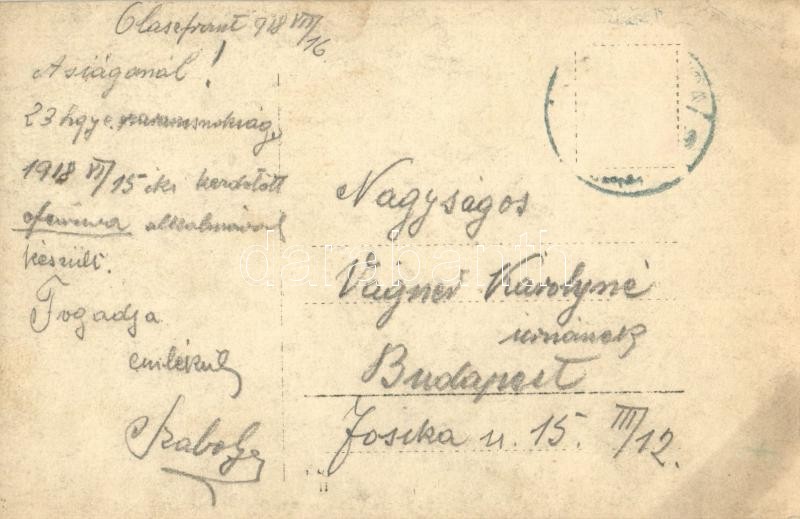 Olaszfront 918 VIII/16
Asiágónál!
23 hgye. parancsnokság,
1918 VI/15 iki kezdotött
ofenziva alkalmával
készült.
Fogadja
emlékül
Szabolcs
Nagyságos
Vágner Károlyné
urnának
Budapest
Josika u. 15. III/12.
darabanth